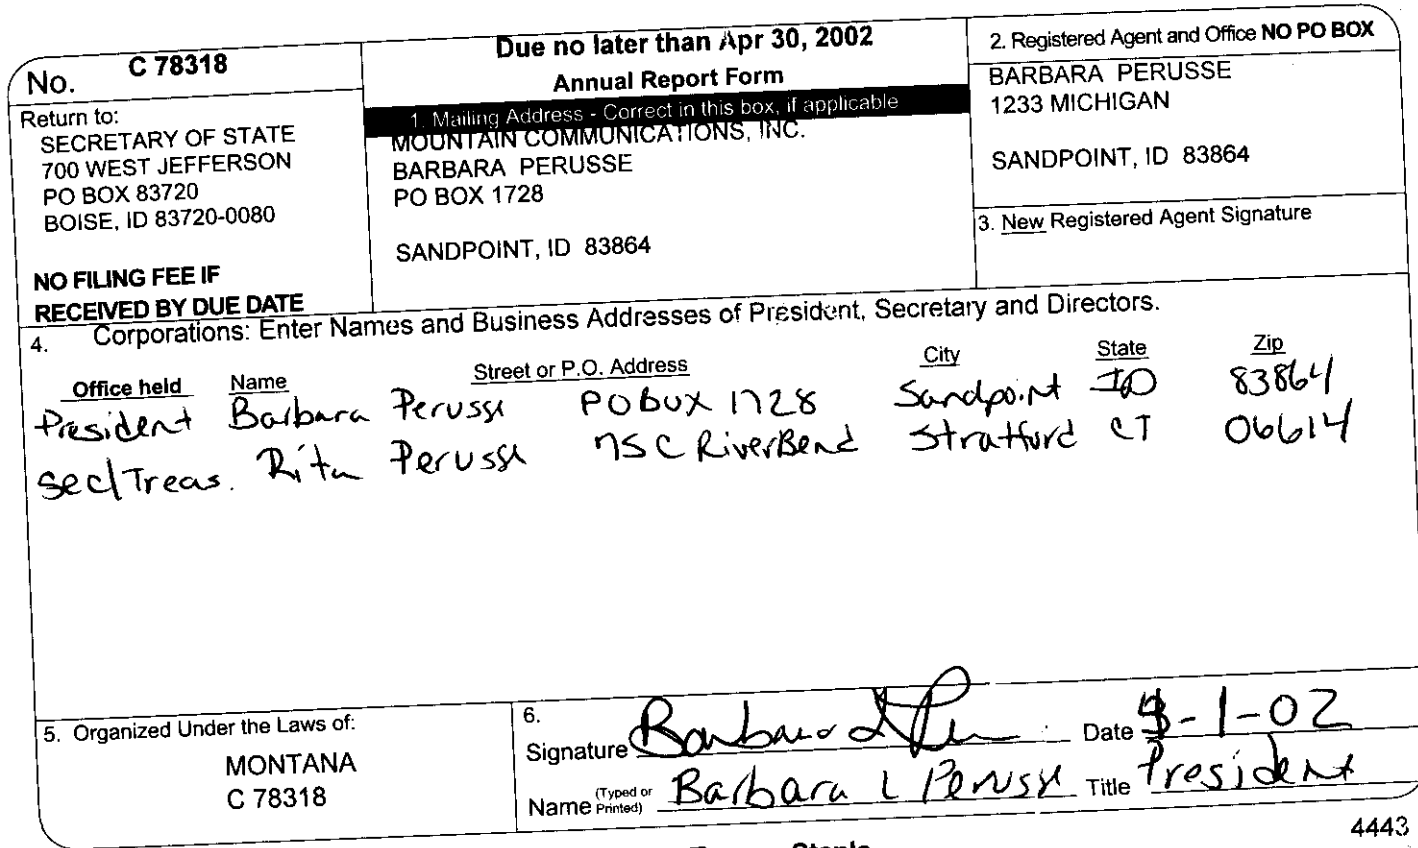 No. C 78318
Return to:
SECRETARY OF STATE
700 WEST JEFFERSON
PO BOX 83720
BOISE, ID 83720-0080
NO FILING FEE IF
RECEIVED BY DUE DATE
Due no later than Apr 30, 2002
Annual Report Form
1. Mailing Address - Correct in this box, if applicable
MOUNTAIN COMMUNICATIONS, INC.
BARBARA PERUSSE
PO BOX 1728
SANDPOINT, ID 83864
2. Registered Agent and Office NO PO BOX
BARBARA PERUSSE
1233 MICHIGAN
SANDPOINT, ID 83864
3. New Registered Agent Signature
4. Corporations: Enter Names and Business Addresses of President, Secretary and Directors.
Office held Name Street or P.O. Address City State Zip
President Barbara Perusse PO Box 1728 Sandpoint ID 83864
Sec/Treas. Rita Perusse 75C RiverBend Stratford CT 06614
5. Organized Under the Laws of:
MONTANA
C 78318
6.
Signature Barbara L Date -1-02
Name (Typed or Printed) Barbara L Perusse Title President
4443